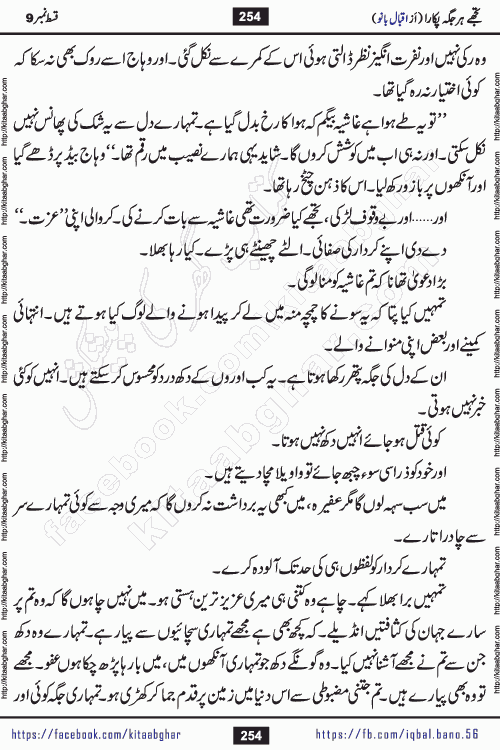 تجھے ہر جگہ پکارا (از اقبال بانو)
254
قسط نمبر 9
وہ رکی نہیں اور نفرت انگیز نظر ڈالتی ہوئی اس کے کمرے سے نکل گئی۔ اور وہاج اسے روک بھی نہ سکا کہ
کوئی اختیار نہ رہ گیا تھا۔
’’تو یہ طے ہوا ہے غاشیہ بیگم کہ ہوا کا رخ بدل گیا ہے۔ تمہارے دل سے یہ شک کی پھانس نہیں
نکل سکتی۔ اور نہ ہی اب میں کوشش کروں گا۔ شاید یہی ہمارے نصیب میں رقم تھا۔‘‘ وہاج بیڈ پر ڈھے گیا
اور آنکھوں پر بازو رکھ لیا۔ اس کا ذہن چیخ رہا تھا۔
اور......اور بے وقوف لڑکی، تجھے کیا ضرورت تھی غاشیہ سے بات کرنے کی۔ کروالی اپنی ’’عزت۔‘‘
دے دی اپنے کردار کی صفائی۔ الٹے چھینٹے ہی پڑے۔ کیا رہا بھلا۔
بڑا دعویٰ تھا نا کہ تم غاشیہ کو منالو گی۔
تمہیں کیا پتا کہ یہ سونے کا چمچہ منہ میں لے کر پیدا ہونے والے لوگ کیا ہوتے ہیں۔ انتہائی
کمینے اور بعض اپنی منوانے والے۔
ان کے دل کی جگہ پتھر رکھا ہوتا ہے۔ یہ کب اوروں کے دکھ درد کو محسوس کر سکتے ہیں۔ انہیں کو کئی
خبر نہیں ہوتی۔
کوئی قتل ہو جائے انہیں دکھ نہیں ہوتا۔
اور خود کو ذرا سی سوء چبھ جائے تو واویلا مچا دیتے ہیں۔
میں سب سہہ لوں گا مگر عفیرہ، میں کبھی یہ برداشت نہ کروں گا کہ میری وجہ سے کوئی تمہارے سر
سے چادر اتارے۔
تمہارے کردار کو لفظوں ہی کی حد تک آلودہ کرے۔
تمہیں برا بھلا کہے۔ چاہے وہ کتنی ہی میری عزیز ترین ہستی ہو۔ میں نہیں چاہوں گا کہ وہ تم پر
سارے جہان کی کثافتیں انڈیلے۔ کہ کچھ بھی ہے مجھے تمہاری سچائیوں سے پیار ہے۔ تمہارے وہ دکھ
جن سے تم نے مجھے آشنا نہیں کیا۔ وہ گونگے دکھ جو تمہاری آنکھوں میں، میں بارہا پڑھ چکا ہوں عفو۔ مجھے
تو وہ بھی پیارے ہیں۔ تم جتنی مضبوطی سے اس دنیا میں زمین پر قدم جما کر کھڑی ہو۔ تمہاری جگہ کوئی اور
https://facebook.com/kitaabghar
254
https://fb.com/iqbal.bano.56
http://kitaabghar.com
facebook.com/kitaabghar